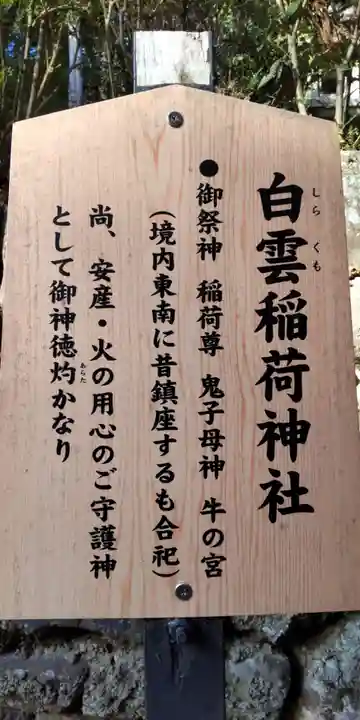 白雲稲荷神社
しらくも
●御祭神 稲荷尊 鬼子母神 牛の宮
(境内東南に昔鎮座するも合祀)
尚、安産・火の用心のご守護神
として御神徳灼かなり
あらた